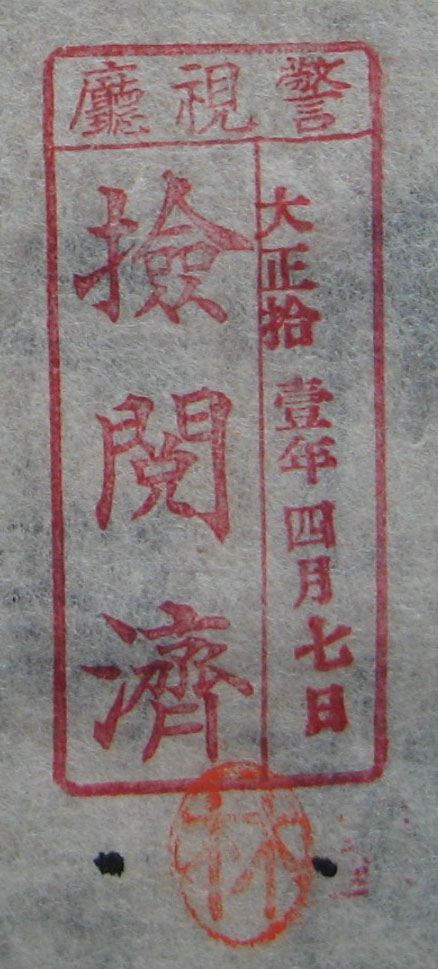 警視廳
大正拾壹年四月七日
撿閲濟
林